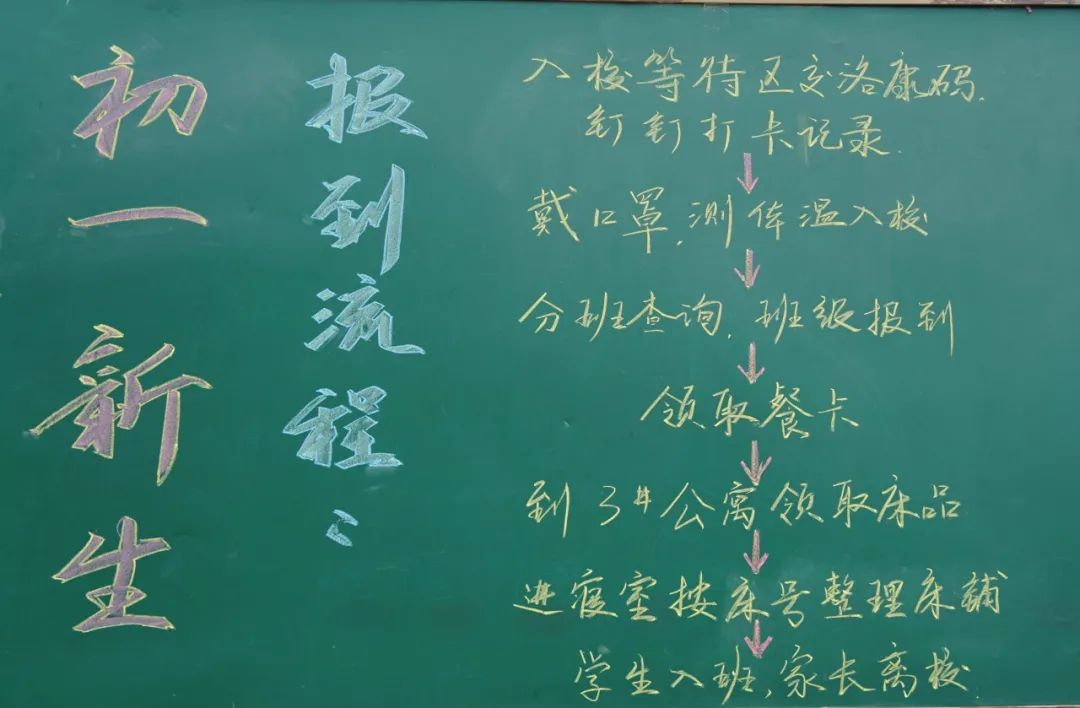 初一新生
报到流程:
入校等待区交洛康码,
钉钉打卡记录.
戴口罩,测体温入校
分班查询,班级报到
领取餐卡
到3#公寓领取床品
进寝室按床号整理床铺
学生入班,家长离校